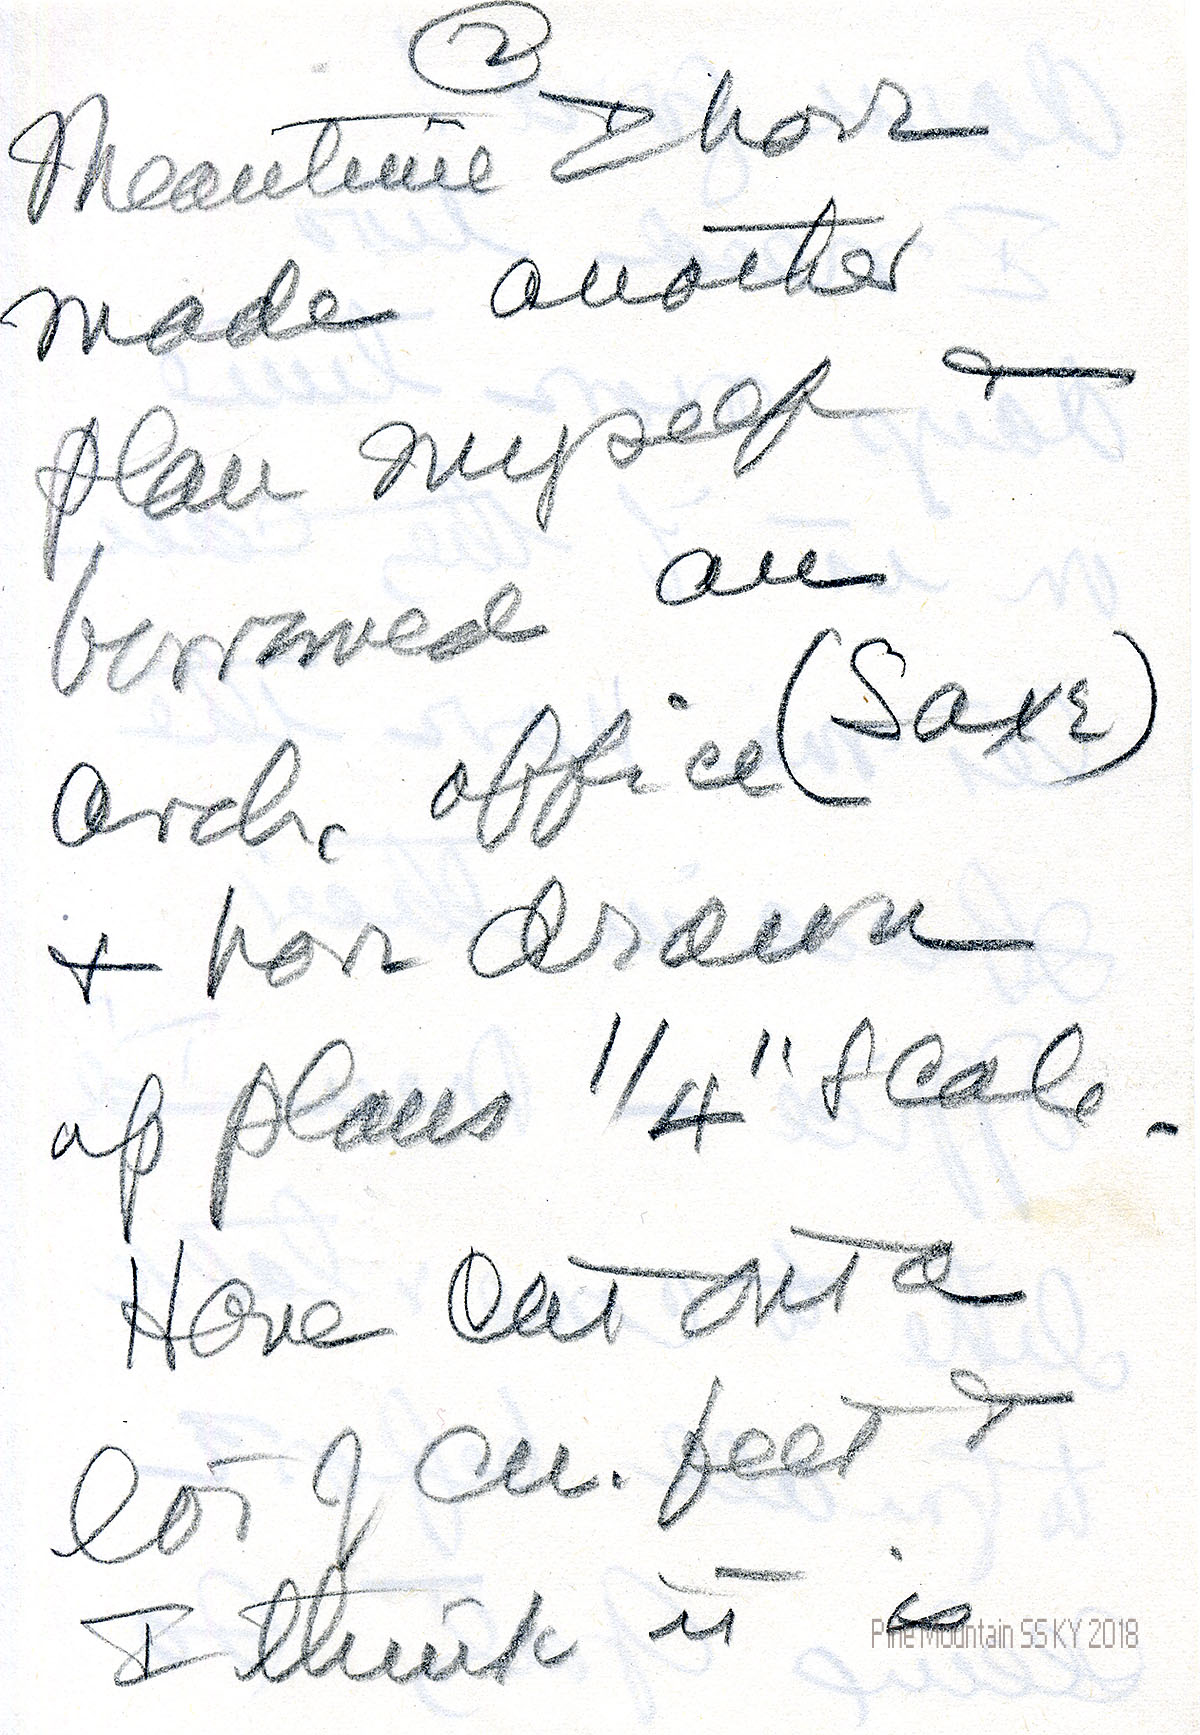 2
Meantime I have
made another
plan myself &
borrowed an
arch. office (Saxe)
+ have drawn
up plans 1/4" scale.
Have cut out a
lot of cu. feet &
I think it is
Pine Mountain SS KY 2018